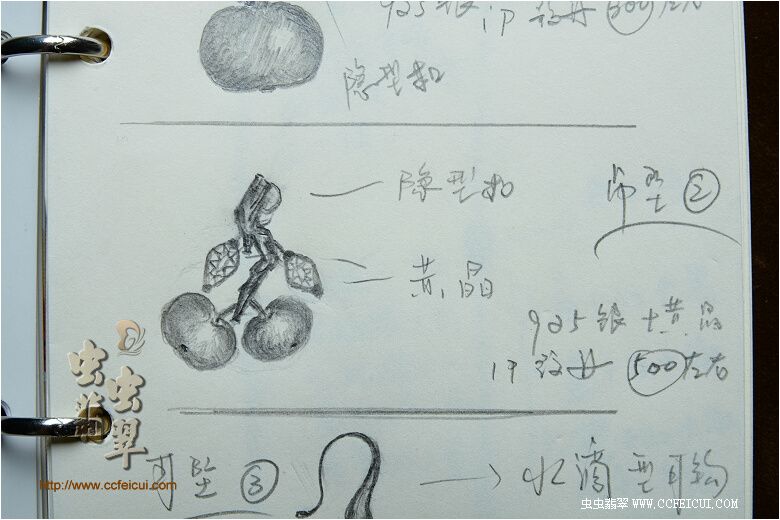 925银
300左右
隐型扣
隐型扣
吊坠②
黄晶
925银+黄晶
500左右
虫虫翡翠
http://www.ccfeicui.com
耳坠③
水滴型耳钩
虫虫翡翠 WWW.CCFEICUI.COM